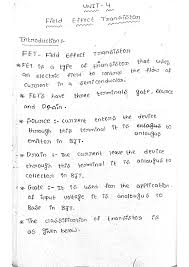 UNIT-4
Field Effect Transistor
Introduction:
FET: Field Effect Transistor
* FET is a type of transistor that uses
an electric field to control the flow of
current in a semiconductor.
* FETs have three terminals gate, source
and Drain.
* Source :- The current enters the device
through this terminal it is analogus to
emitter in BJT.
* Drain :- The current leave the device
through this terminal it is analogus to
collector in BJT.
* Gate :- It is used for the application
of input voltage it is analogus to
Base in BJT.
* The classification of transistor is
as given below.